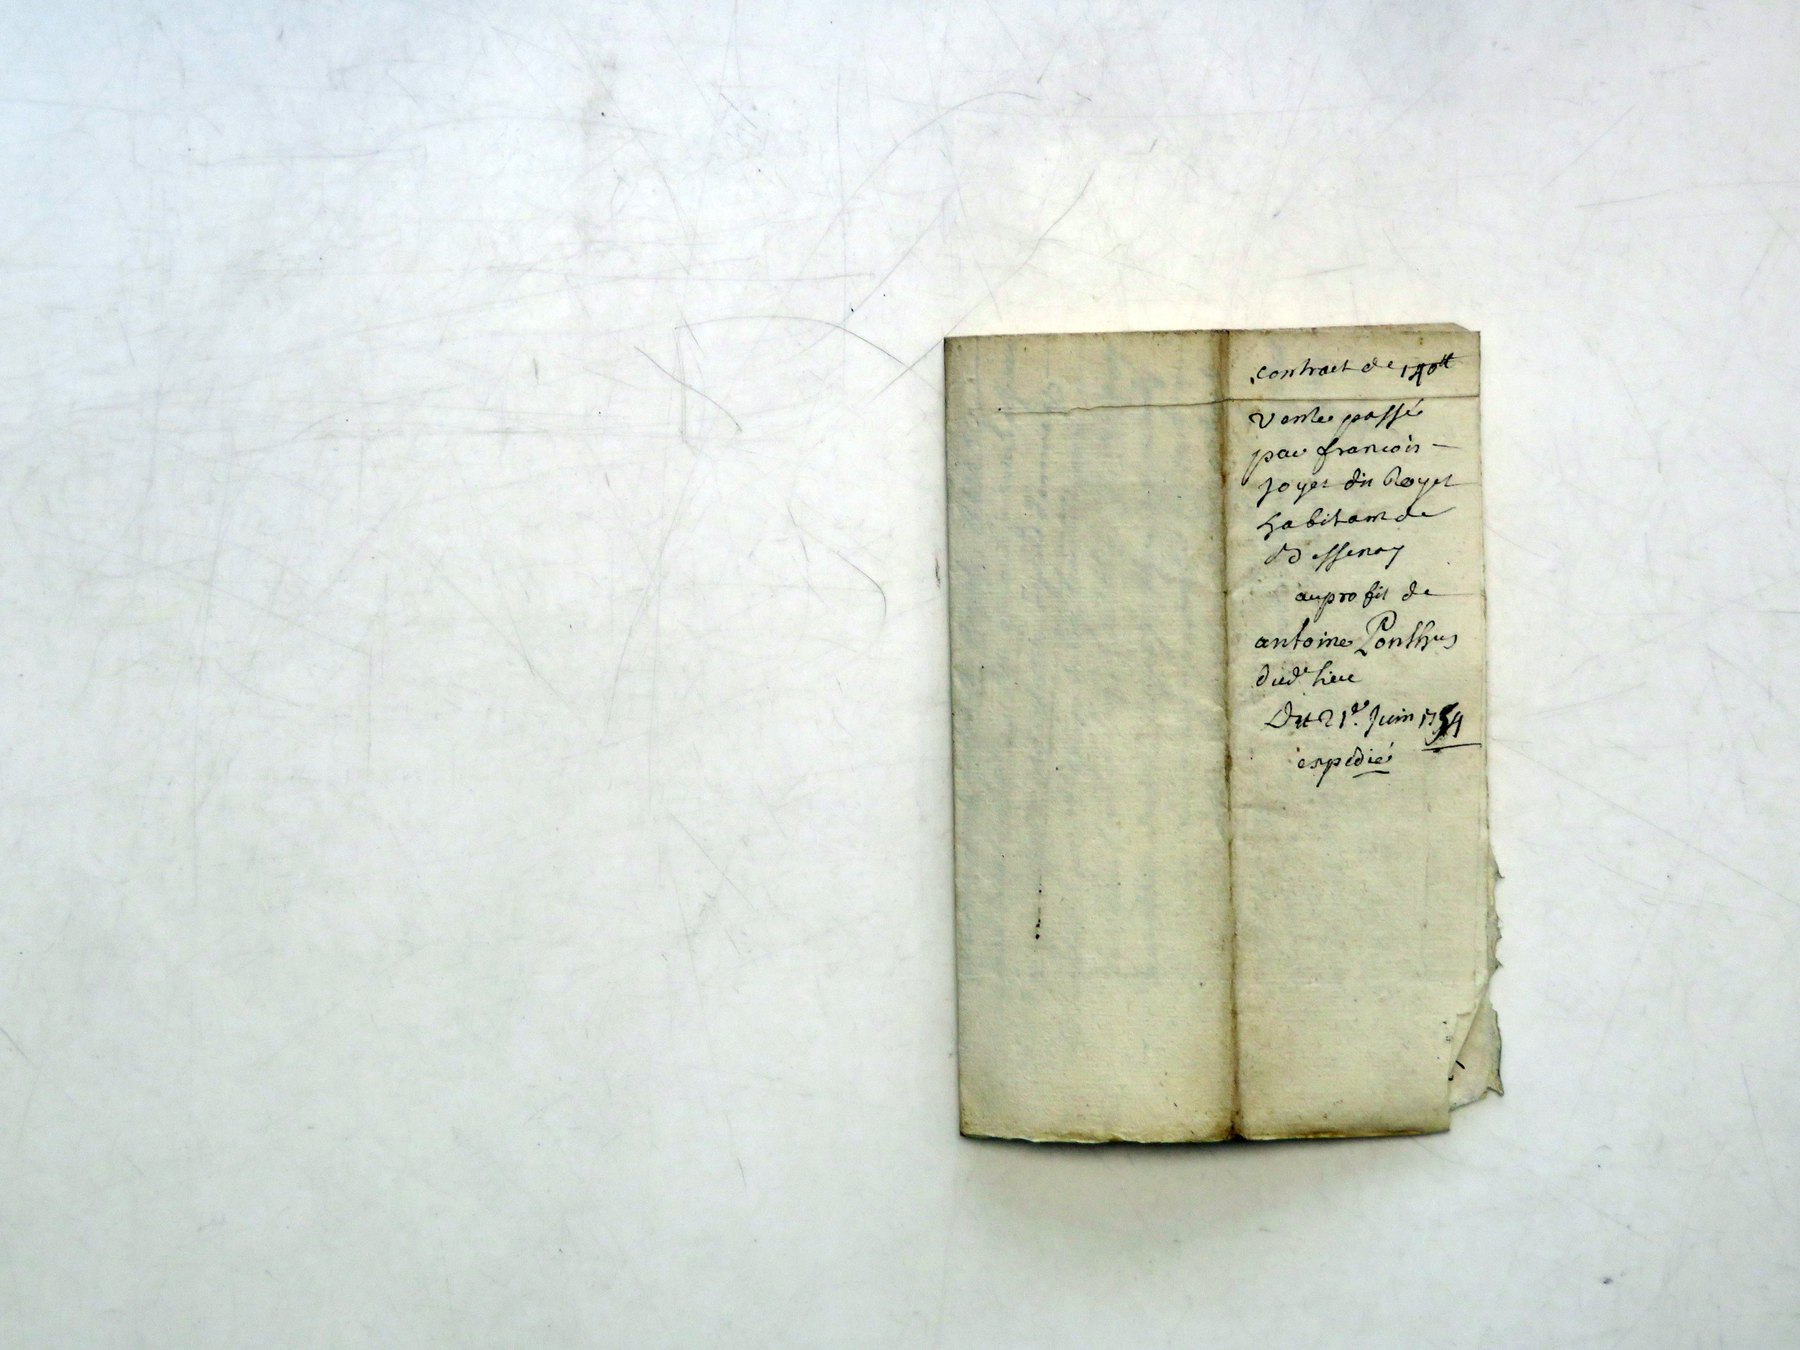 contract de
vente passé
par francois
Joyet dit Royet
habitant de
d'essenay
au profit de
antoine Ponthus
dud.t lieu
Du 21.e Juin 1754
expédié